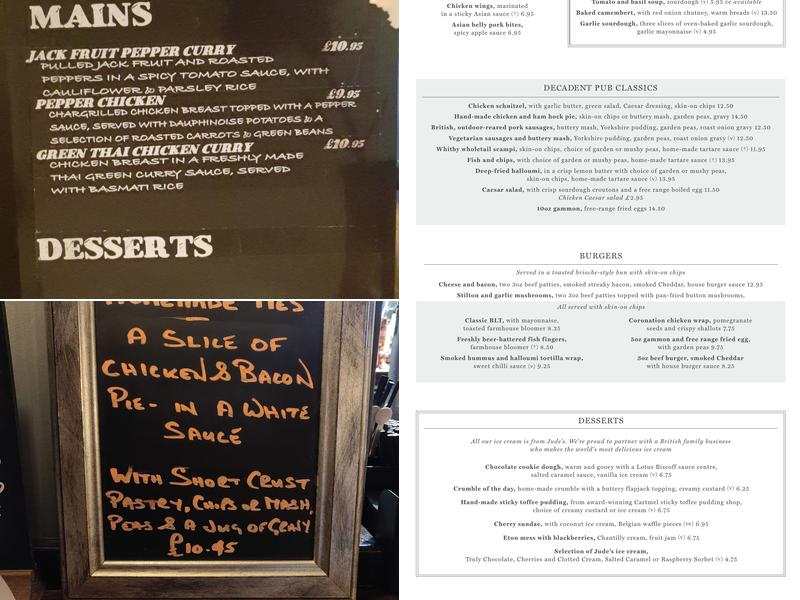 MAINS
JACK FRUIT PEPPER CURRY £10.95
PULLED JACK FRUIT AND ROASTED
PEPPERS IN A SPICY TOMATO SAUCE, WITH
CAULIFLOWER & PARSLEY RICE
PEPPER CHICKEN £9.95
CHARGRILLED CHICKEN BREAST TOPPED WITH A PEPPER
SAUCE, SERVED WITH DAUPHINOISE POTATOES & A
SELECTION OF ROASTED CARROTS & GREEN BEANS
GREEN THAI CHICKEN CURRY £10.95
CHICKEN BREAST IN A FRESHLY MADE
THAI GREEN CURRY SAUCE, SERVED
WITH BASMATI RICE
DESSERTS
HOMEMADE PIES
A SLICE OF
CHICKEN & BACON
PIE - IN A WHITE
SAUCE
WITH SHORT CRUST
PASTRY, CHIPS OR MASH,
PEAS & A JUG OF GRAVY
£10.95
Chicken wings, marinated
in a sticky Asian sauce (†) 6.95
Asian belly pork bites,
spicy apple sauce 6.95
Tomato and basil soup, sourdough (v) 5.95 ve available
Baked camembert, with red onion chutney, warm breads (v) 13.50
Garlic sourdough, three slices of oven-baked garlic sourdough,
garlic mayonnaise (v) 4.95
DECADENT PUB CLASSICS
Chicken schnitzel, with garlic butter, green salad, Caesar dressing, skin-on chips 12.50
Hand-made chicken and ham hock pie, skin-on chips or buttery mash, garden peas, gravy 14.50
British, outdoor-reared pork sausages, buttery mash, Yorkshire pudding, garden peas, roast onion gravy 12.50
Vegetarian sausages and buttery mash, Yorkshire pudding, garden peas, roast onion gravy (v) 12.50
Whitby wholetail scampi, skin-on chips, choice of garden or mushy peas, home-made tartare sauce (†) 11.95
Fish and chips, with choice of garden or mushy peas, home-made tartare sauce (†) 13.95
Deep-fried halloumi, in a crisp lemon batter with choice of garden or mushy peas,
skin-on chips, home-made tartare sauce (v) 13.95
Caesar salad, with crisp sourdough croutons and a free range boiled egg 11.50
Chicken Caesar salad £2.95
10oz gammon, free-range fried eggs 14.50
BURGERS
Served in a toasted brioche-style bun with skin-on chips
Cheese and bacon, two 3oz beef patties, smoked streaky bacon, smoked Cheddar, house burger sauce 12.95
Stilton and garlic mushrooms, two 3oz beef patties topped with pan-fried button mushrooms,
All served with skin-on chips
Classic BLT, with mayonnaise,
toasted farmhouse bloomer 8.25
Freshly beer-battered fish fingers,
farmhouse bloomer (†) 8.50
Smoked hummus and halloumi tortilla wrap,
sweet chilli sauce (v) 9.25
Coronation chicken wrap, pomegranate
seeds and crispy shallots 7.75
5oz gammon and free range fried egg,
with garden peas 9.75
3oz beef burger, smoked Cheddar
with house burger sauce 8.25
DESSERTS
All our ice cream is from Jude's. We're proud to partner with a British family business
who makes the world's most delicious ice cream
Chocolate cookie dough, warm and gooey with a Lotus Biscoff sauce centre,
salted caramel sauce, vanilla ice cream (v) 6.75
Crumble of the day, home-made crumble with a buttery flapjack topping, creamy custard (v) 6.25
Hand-made sticky toffee pudding, from award-winning Cartmel sticky toffee pudding shop,
choice of creamy custard or ice cream (v) 6.75
Cherry sundae, with coconut ice cream, Belgian waffle pieces (ve) 6.95
Eton mess with blackberries, Chantilly cream, fruit jam (v) 6.75
Selection of Jude's ice cream,
Truly Chocolate, Cherries and Clotted Cream, Salted Caramel or Raspberry Sorbet (v) 4.75